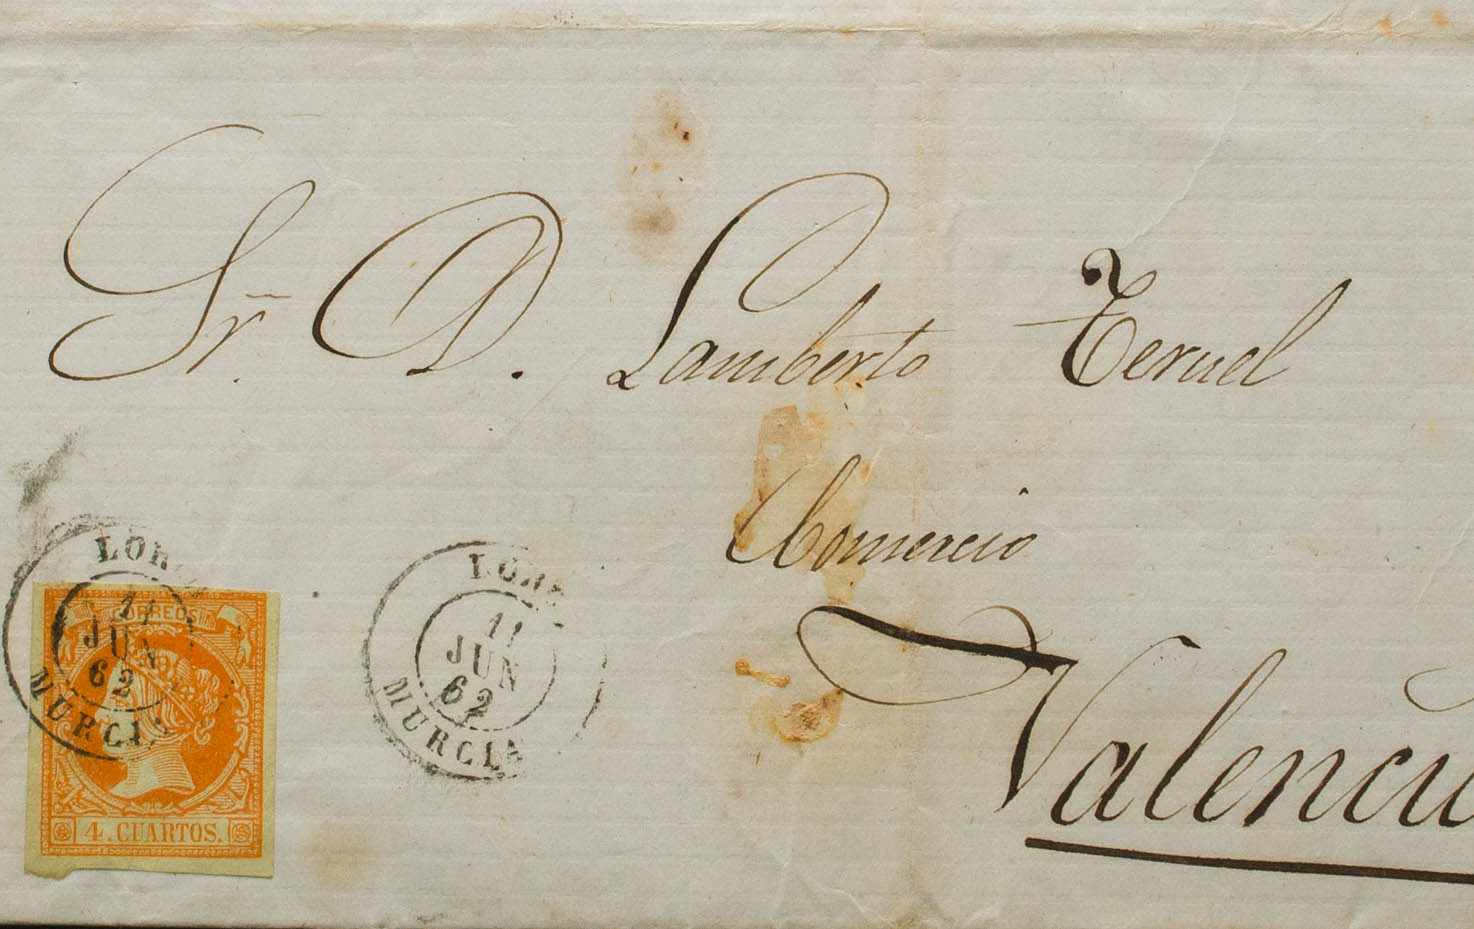 Sr. D. Lamberto Teruel
Comercio
Valencia
LOR
11
JUN
62
MURCIA
CORREOS
4. CUARTOS.
LOR
11
JUN
62
MURCIA